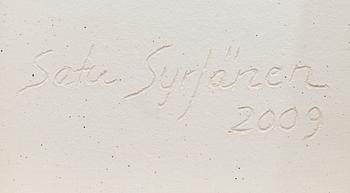 Satu Syrjänen
2009